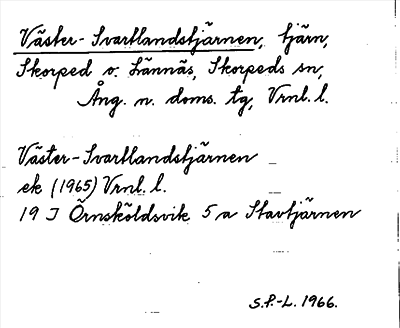 Väster-Svartlandstjärnen, tjärn,
Skorped o. Lännäs, Skorpeds sn,
Ång. n. doms. tg, Vrnl. l.
Väster-Svartlandstjärnen
ek (1965) Vrnl. l.
19 I Örnsköldsvik 5 a Stavtjärnen
S.P.-L. 1966.